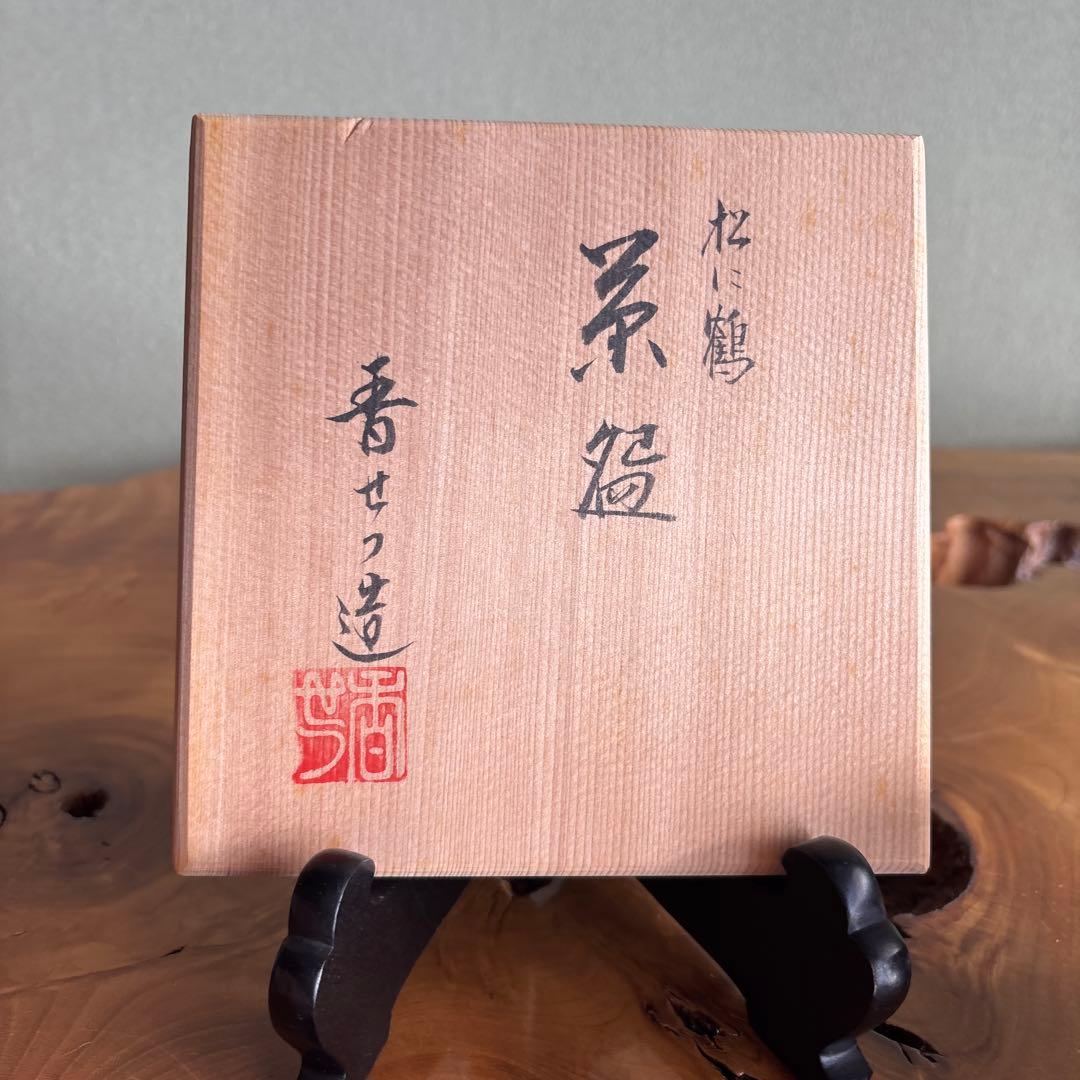 松に鶴
茶盌
香せつ造
香
せつ